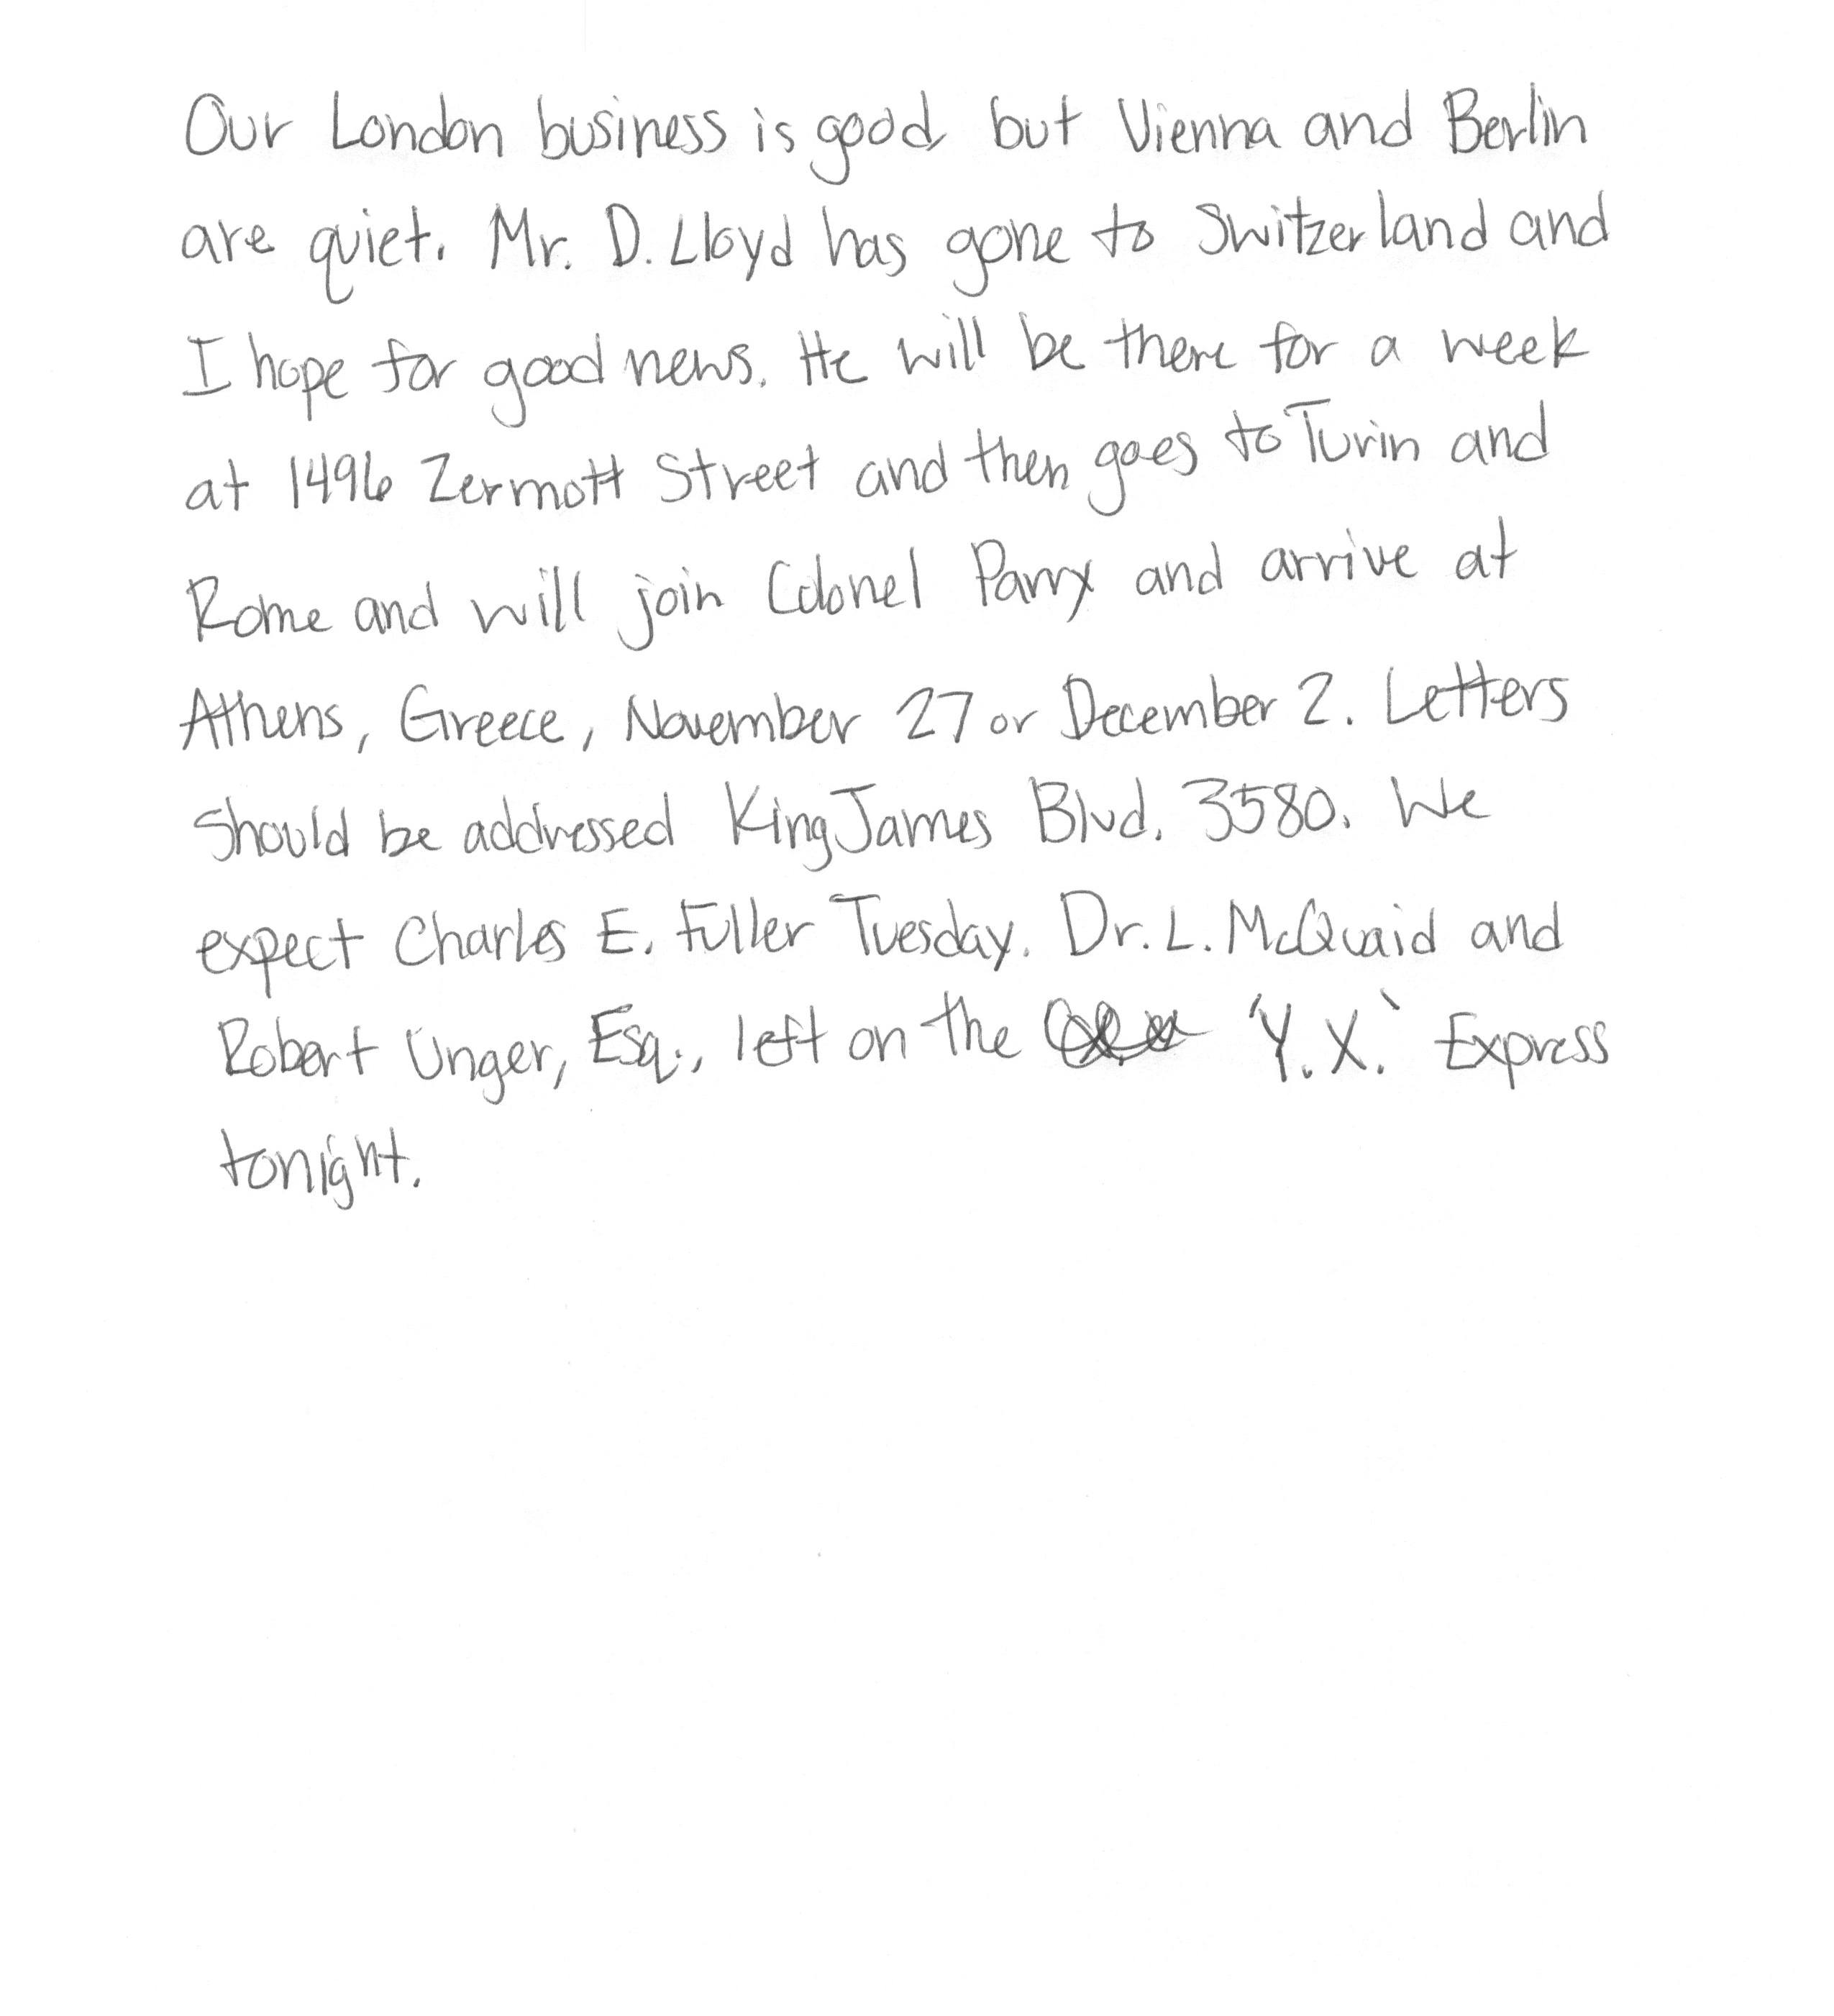 Our London business is good, but Vienna and Berlin
are quiet. Mr. D. Lloyd has gone to Switzerland and
I hope for good news. He will be there for a week
at 1496 Zermott Street and then goes to Turin and
Rome and will join Colonel Parry and arrive at
Athens, Greece, November 27 or December 2. Letters
should be addressed King James Blvd. 3580. We
expect Charles E. Fuller Tuesday. Dr. L. McQuaid and
Robert Unger, Esq., left on the 'Y.X.' Express
tonight.